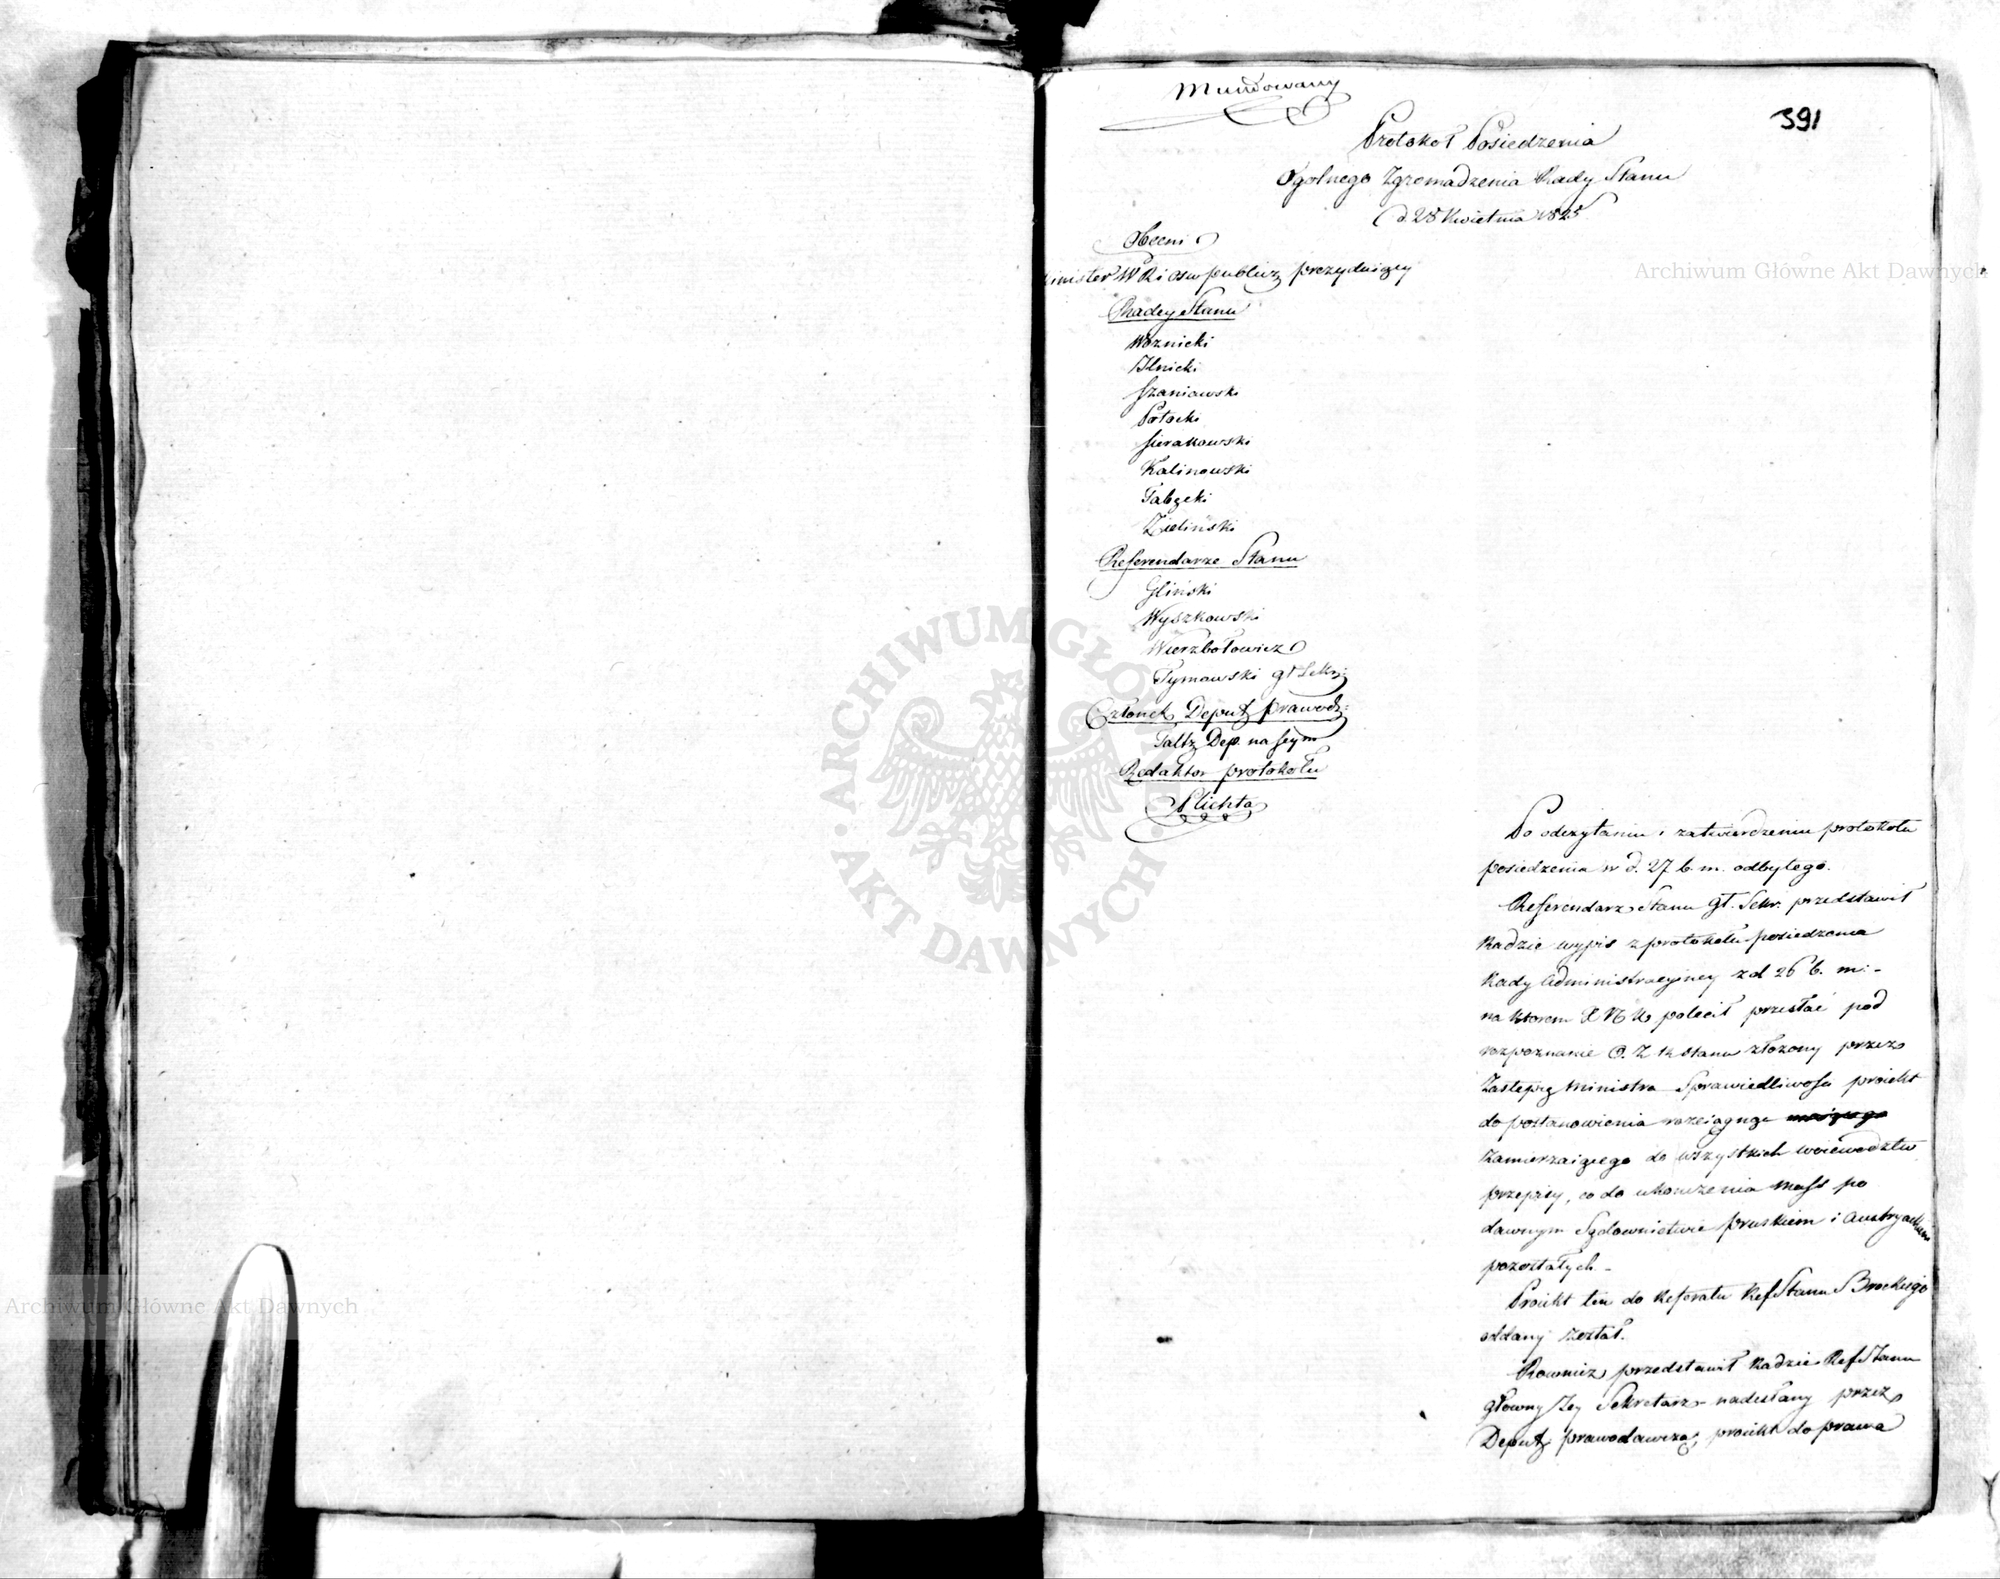 Mundowany
391
Protokoł Posiedzenia
Ogolnego Zgromadzenia Rady Stanu
d. 28 Kwietnia 1825
Obecni
Minister W R i Ośw publicz prezyduiący
Radcy Stanu
Woznicki
Ilnicki
Szaniawski
Potocki
Sierakowski
Kalinowski
Tabęcki
Zieliński
Referendarze Stanu
Gliński
Wyszkowski
Wierzbołowicz
Tymowski gł Sekr:
Członek Deput prawod:
Faltz Dep. na Seym
Redaktor protokołu
Plichta
Po odczytaniu i zatwierdzeniu protokołu
posiedzenia w d. 27 b. m. odbytego.
Referendarz Stanu gł. Sekr. przedstawił
Radzie wypis z protokołu posiedzenia
Rady Administracyiney z d 26 b. m:
na ktorem X N K polecił przesłać pod
rozpoznanie O. Z R Stanu złożony przez
Zastępcę Ministra Sprawiedliwości proiekt
do postanowienia rozciągnąć
zamierzaiącego do wszystkich woiewodztw
przepisy, co do ukończenia mass po
dawnym Sądownictwie pruskiem i Austryackiem
pozostałych -
Proiekt ten do Referatu Ref Stanu Brockiego
oddany został.
Rownież przedstawił Radzie Ref Stanu
głowny Jey Sekretarz nadesłany przez
Deput. prawodawczą, proiekt do prawa
Archiwum Główne Akt Dawnych
Archiwum Główne Akt Dawnych
ARCHIWUM GŁÓWNE · AKT DAWNYCH ·